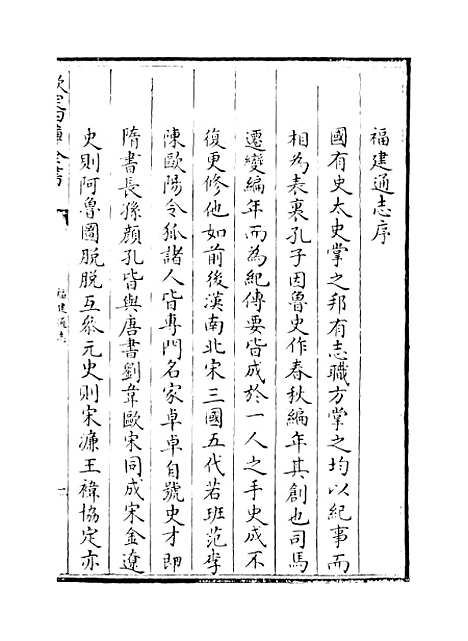 福建通志序
國有史太史掌之邦有志職方掌之均以紀事而
相為表裏孔子因魯史作春秋編年其創也司馬
遷變編年而為紀傳要皆成於一人之手史成不
復更修他如前後漢南北宋三國五代若班范李
陳歐陽令狐諸人皆專門名家卓卓自號史才即
隋書長孫顏孔皆與唐書劉韋歐宋同成宋金遼
史則阿魯圖脫脫互叅元史則宋濂王褘協定亦
欽定四庫全書
福建通志
一